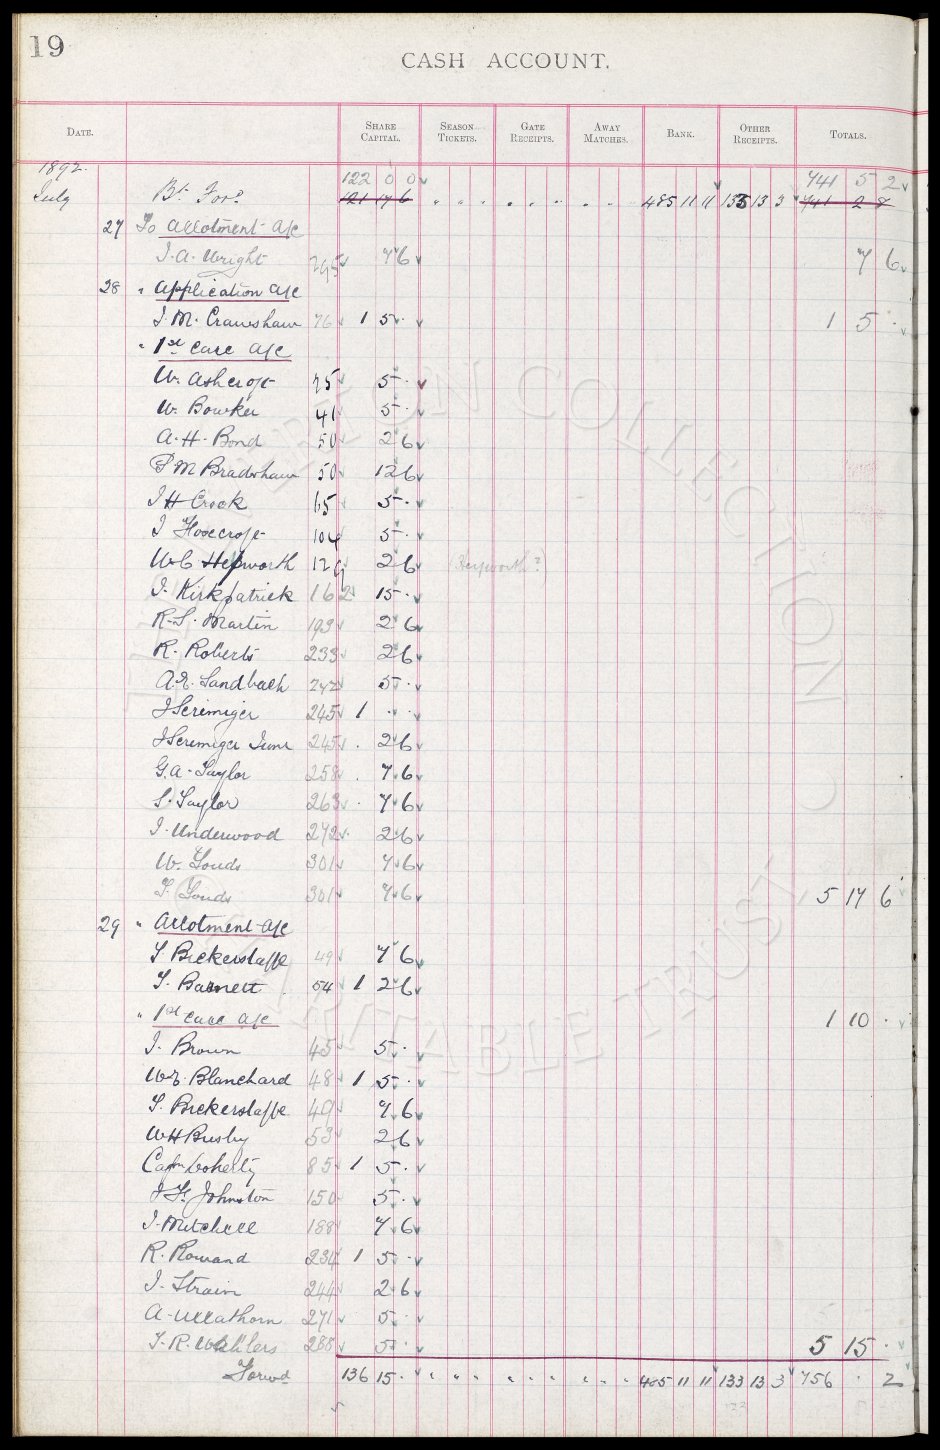 19
CASH ACCOUNT.
DATE. SHARE CAPITAL. SEASON TICKETS. GATE RECEIPTS. AWAY MATCHES. BANK. OTHER RECEIPTS. TOTALS.
1892.
122 0 0 741 5 2
July Bt. Ford 121 17 6 " " " " " " " " " 485 11 11 133 13 3 741 2 8
27 To Allotment a/c
J. A. Wright 295 7 6 7 6
28 " Application a/c
J. M. Crawshaw 76 1 5 . 1 5 .
" 1st Call a/c
W. Ashcroft 25 5 .
W. Bowker 41 5 .
A. H. Bond 50 2 6
P M Bradshaw 50 12 6
J H Crook 65 5 .
J Hosecroft 104 5 .
W C Hepworth 129 2 6 (Heyworth?)
J. Kirkpatrick 162 15 .
R. S. Martin 193 2 6
R. Roberts 233 2 6
A. E. Sandbach 242 5 .
J Scrimiger 245 1 . .
J Scrimiger Junr 245 . 2 6
G. A. Taylor 258 . 7 6
S. Taylor 263 . 7 6
J. Underwood 272 . 2 6
W. Youds 301 7 6
F. Youds 301 7 6 5 17 6
29 " Allotment a/c
T. Bickerstaffe 49 7 6
T. Barnett 54 1 2 6
" 1st Call a/c 1 10 .
J. Brown 45 5 .
W. E. Blanchard 48 1 5 .
T. Bickerstaffe 49 7 6
W H Busby 53 2 6
Captn Doherty 85 1 5 .
J F. Johnston 150 5 .
J. Mitchell 188 7 6
R. Rowand 234 1 5 .
J. Strain 244 2 6
A. Ullathorn 271 5 .
T. R. Wahlers 288 5 . 5 15 .
Forwd 136 15 . " " " " " " " " " 485 11 11 133 13 3 756 . 2
EVERTON COLLECTION
CHARITABLE TRUST